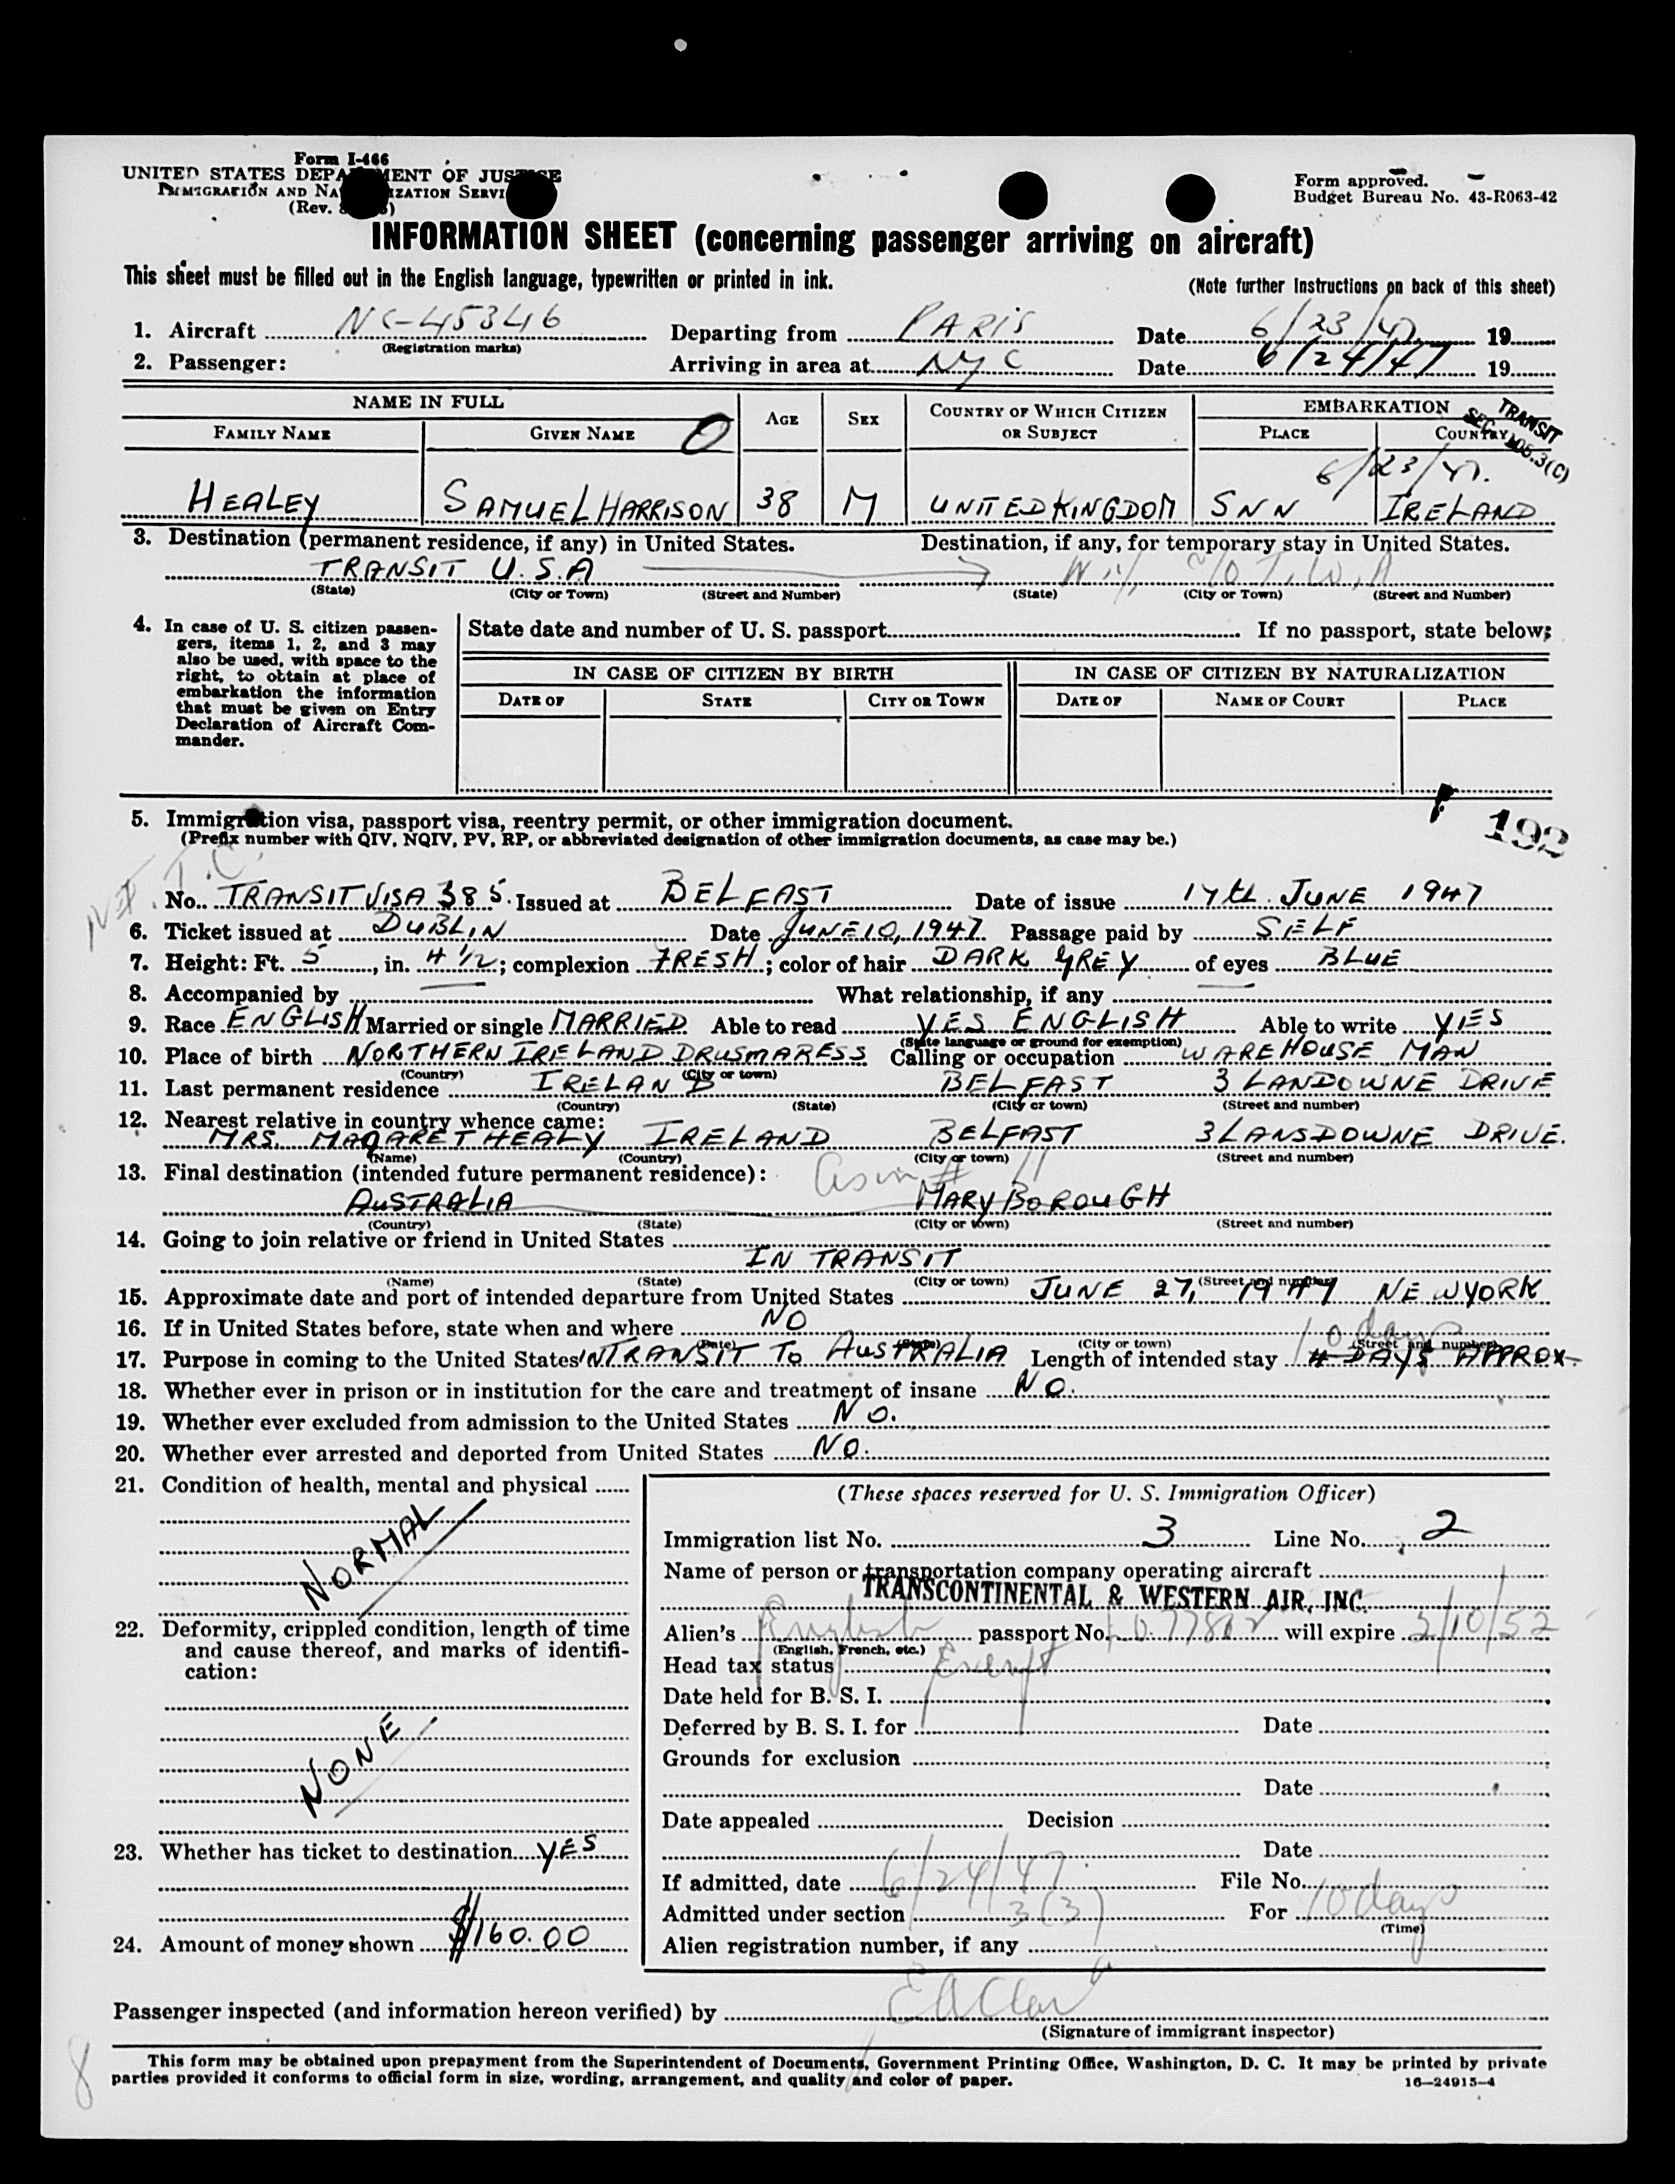 Form I-466
UNITED STATES DEPARTMENT OF JUSTICE
IMMIGRATION AND NATURALIZATION SERVICE
(Rev.
Form approved.
Budget Bureau No. 43-R063-42
INFORMATION SHEET (concerning passenger arriving on aircraft)
This sheet must be filled out in the English language, typewritten or printed in ink.
(Note further instructions on back of this sheet)
1. Aircraft NC-45346 Departing from PARIS Date 6/23/47 19
(Registration marks)
2. Passenger: Arriving in area at NYC Date 6/24/47 19
NAME IN FULL AGE SEX COUNTRY OF WHICH CITIZEN OR SUBJECT EMBARKATION
TRANSIT
SEC. 106.3(C)
FAMILY NAME GIVEN NAME O PLACE COUNTRY
6/23/47.
HEALEY SAMUEL HARRISON 38 M UNITED KINGDOM SNN IRELAND
3. Destination (permanent residence, if any) in United States. Destination, if any, for temporary stay in United States.
TRANSIT U.S.A N.Y. c/o T.W.A
(State) (City or Town) (Street and Number) (State) (City or Town) (Street and Number)
4. In case of U. S. citizen passen-
gers, items 1, 2, and 3 may
also be used, with space to the
right, to obtain at place of
embarkation the information
that must be given on Entry
Declaration of Aircraft Com-
mander.
State date and number of U. S. passport If no passport, state below:
IN CASE OF CITIZEN BY BIRTH IN CASE OF CITIZEN BY NATURALIZATION
DATE OF STATE CITY OR TOWN DATE OF NAME OF COURT PLACE
5. Immigration visa, passport visa, reentry permit, or other immigration document.
(Prefix number with QIV, NQIV, PV, RP, or abbreviated designation of other immigration documents, as case may be.)
192
T.C.
No. TRANSIT VISA 385. Issued at BELFAST Date of issue 17th JUNE 1947
6. Ticket issued at DUBLIN Date JUNE 10, 1947 Passage paid by SELF
7. Height: Ft. 5, in. 4 1/2; complexion FRESH; color of hair DARK GREY of eyes BLUE
8. Accompanied by What relationship, if any
9. Race ENGLISH Married or single MARRIED Able to read YES ENGLISH Able to write YES
(State language or ground for exemption)
10. Place of birth NORTHERN IRELAND DRUSMARESS Calling or occupation WAREHOUSE MAN
(Country) (City or town)
11. Last permanent residence IRELAND BELFAST 3 LANDOWNE DRIVE
(Country) (State) (City or town) (Street and number)
12. Nearest relative in country whence came:
MRS. MAGARET HEALY IRELAND BELFAST 3 LANSDOWNE DRIVE.
(Name) (Country) (City or town) (Street and number)
13. Final destination (intended future permanent residence): as in # 11
AUSTRALIA MARYBOROUGH
(Country) (State) (City or town) (Street and number)
14. Going to join relative or friend in United States
IN TRANSIT
(Name) (State) (City or town) (Street and number)
15. Approximate date and port of intended departure from United States JUNE 27, 1947 NEW YORK
16. If in United States before, state when and where NO
(Date) (State) (City or town) (Street and number)
10 days
17. Purpose in coming to the United States IN TRANSIT TO AUSTRALIA Length of intended stay 4 DAYS APPROX.
18. Whether ever in prison or in institution for the care and treatment of insane NO.
19. Whether ever excluded from admission to the United States NO.
20. Whether ever arrested and deported from United States NO.
21. Condition of health, mental and physical
NORMAL
22. Deformity, crippled condition, length of time
and cause thereof, and marks of identifi-
cation:
NONE
23. Whether has ticket to destination YES
24. Amount of money shown $160.00
(These spaces reserved for U. S. Immigration Officer)
Immigration list No. 3 Line No. 2
Name of person or transportation company operating aircraft
TRANSCONTINENTAL & WESTERN AIR, INC.
Alien's English passport No. 077802 will expire 3/10/52
(English, French, etc.)
Head tax status Exempt
Date held for B. S. I.
Deferred by B. S. I. for Date
Grounds for exclusion
Date
Date appealed Decision
Date
If admitted, date 6/24/47 File No.
Admitted under section 3(3) For 10 days
(Time)
Alien registration number, if any
Passenger inspected (and information hereon verified) by
(Signature of immigrant inspector)
8
This form may be obtained upon prepayment from the Superintendent of Documents, Government Printing Office, Washington, D. C. It may be printed by private
parties provided it conforms to official form in size, wording, arrangement, and quality and color of paper.
16—24915-4